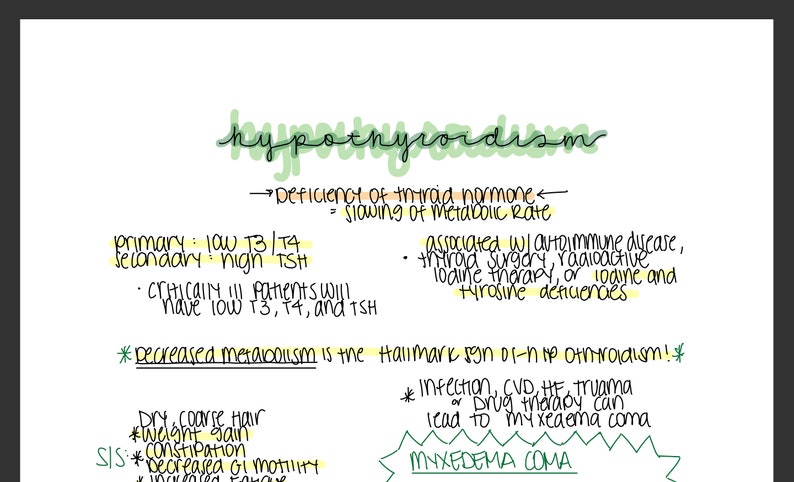 hypothyroidism
→ Deficiency of thyroid hormone ←
= slowing of metabolic rate
primary : low T3/T4
secondary : high TSH
· critically ill patients will
have low T3, T4, and TSH
associated w/ autoimmune disease,
· thyroid surgery, radioactive
iodine therapy, or iodine and
tyrosine deficiencies
* Decreased metabolism is the Hallmark sign of hypothyroidism! *
* Infection, CVD, HF, truama
or Drug therapy can
lead to myxedema coma
Dry, coarse Hair
* weight gain
S/S: * constipation
* Decreased GI motility
* increased fatigue
MYXEDEMA COMA